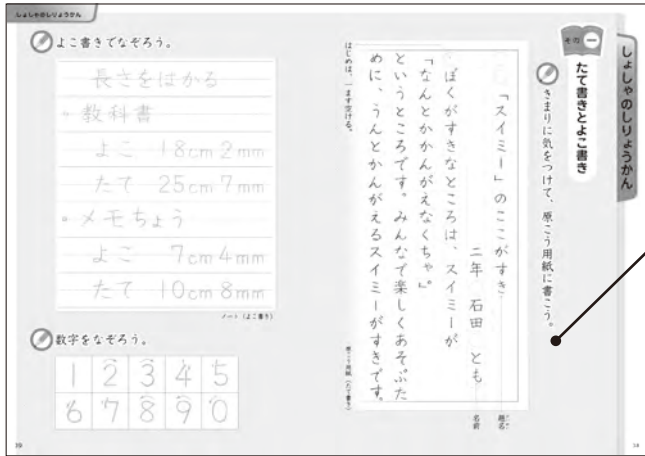 しょしゃのしりょうかん
しょしゃのしりょうかん
その一
たて書きとよこ書き
きまりに気をつけて、原こう用紙に書こう。
題名
名前
「スイミー」のここがすき
二年 石田 とも
ぼくがすきなところは、スイミーが
「なんとかかんがえなくちゃ。」
というところです。みんなで楽しくあそぶた
めに、うんとかんがえるスイミーがすきです。
はじめは、一ます空ける。
原こう用紙(たて書き)
よこ書きでなぞろう。
長さをはかる
・教科書
よこ 18cm 2mm
たて 25cm 7mm
・メモちょう
よこ 7cm 4mm
たて 10cm 8mm
ノート(よこ書き)
数字をなぞろう。
1 2 3 4 5
6 7 8 9 0
39